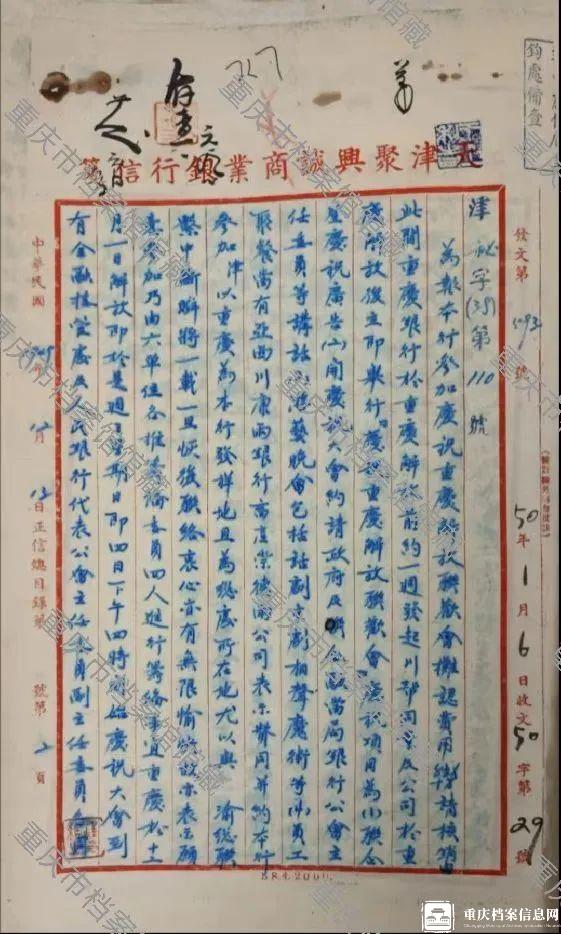 鈞處備查
存查
727
天津聚興誠商業銀行信箋
50年1月6日收文50字第29號
發文第593號
津秘字(39)第110號
為報本行參加慶祝重慶解放聯歡會攤認費用幣請核備
此間重慶銀行於重慶解放前約一週發起川幫同業及公司於重
慶解放後立即舉行慶祝重慶解放聯歡會慶祝項目為(1)聯合
登慶祝廣告(2)開慶祝大會約請政府及金融當局銀行公會主
任委員等講話(3)游藝晚會包括話劇京劇相聲魔術等(4)員工
聚餐當有亞西川康兩銀行南直崇德兩公司表示贊同並約本行
參加津以重慶為本行發祥地且為總處所在地尤以與渝總聯
繫中斷瞬將一載一旦恢復聯絡衷心亦有無限愉快故亦表示願
意參加乃由六單位各推籌備委員四人進行籌備事宜重慶於十一
月一日解放即於是週之星期日即四日下午四時開始慶祝大會到
有金融管處及人民銀行代表公會主任委員副主任委員
中華民國 年 月 日正信總目錄第 號第 頁
ER.4.2000.
重庆市档案馆馆藏
重庆档案信息网